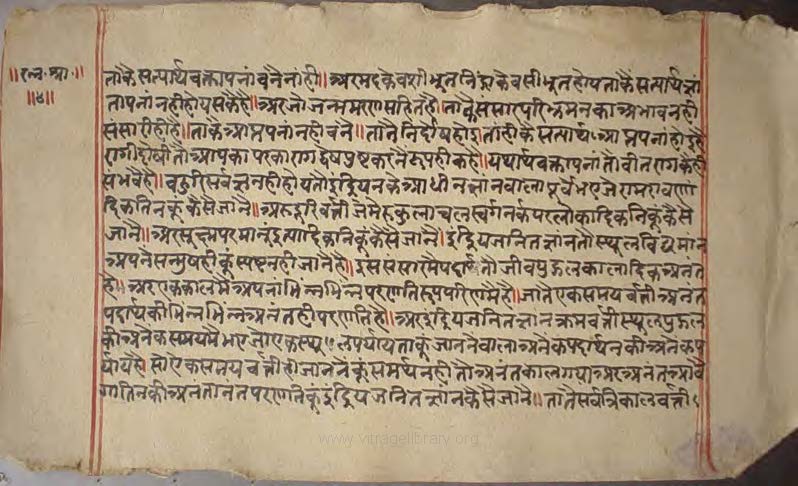 ॥रत्न॰श्रा॰॥
॥४॥
ताकै सत्यार्थवक्तापनां बनै नांही॥ अर मदकै वशीभूत निद्राकै वसीभूत होय ताकै सत्यार्थ ज्ञा
तापनां नही होय सकै है॥ अर जो जन्म मरण सहित है॥ ताकै संसारपरिभ्रमनका अभाव नही
संसारीही है॥ ताकै आप्तपनां नही बनै॥ तातै निर्दोष होइ ताहीकै सत्यार्थ आप्तपनां होइ है
रागी द्वेषी तौ आपका परका राग द्वेष पुष्ट करनै रूपही कहै॥ यथार्थवक्तापनां तौ वीतरागकैही
संभवै है॥ बहुरि सर्वज्ञ नही होय तौ इंद्रियनकै आधीन ज्ञानवाला पूर्वै भए जे राम रावणा
दिक तिनकूं कैसै जानै॥ अर दूरिवर्त्ती जे मेरु कुलाचल स्वर्ग नर्क परलोकादिकनिकूं कैसै
जानै॥ अर सूक्ष्म परमानु इत्यादिकनिकूं कैसै जानै॥ इंद्रियजनित ज्ञान तौ स्थूल विद्यमान
अपनै सन्मुषहीकूं स्पष्ट नही जानै है॥ इस संसारमै पदार्थ तौ जीव पुद्गल कालादिक अनंत
है॥ अर एककालमै अपनी भिन्न भिन्न परणतिरूप परिणमै है॥ जातै एकसमयवर्त्ती अनंत
पदार्थकी भिन्न भिन्न अनंतही परणति है॥ अर इंद्रियजनित ज्ञान क्रमवर्त्ती स्थूल पुद्गलन
की अनेक समयमै भए जो एक स्थूलपर्याय ताकूं जाननेवाला अनेकपदार्थनकी अनेक प
र्याय है॥ सो एकसमयवर्त्तीही जाननैकूं समर्थ नही तौ अनंतकाल गया अर अनंत आवै
गा तिनकी अनंतानंत परणतिकूं इंद्रियजनित ज्ञान कैसै जानै॥ तातै सर्व त्रिकालवर्त्ती
www.vitragelibrary.org